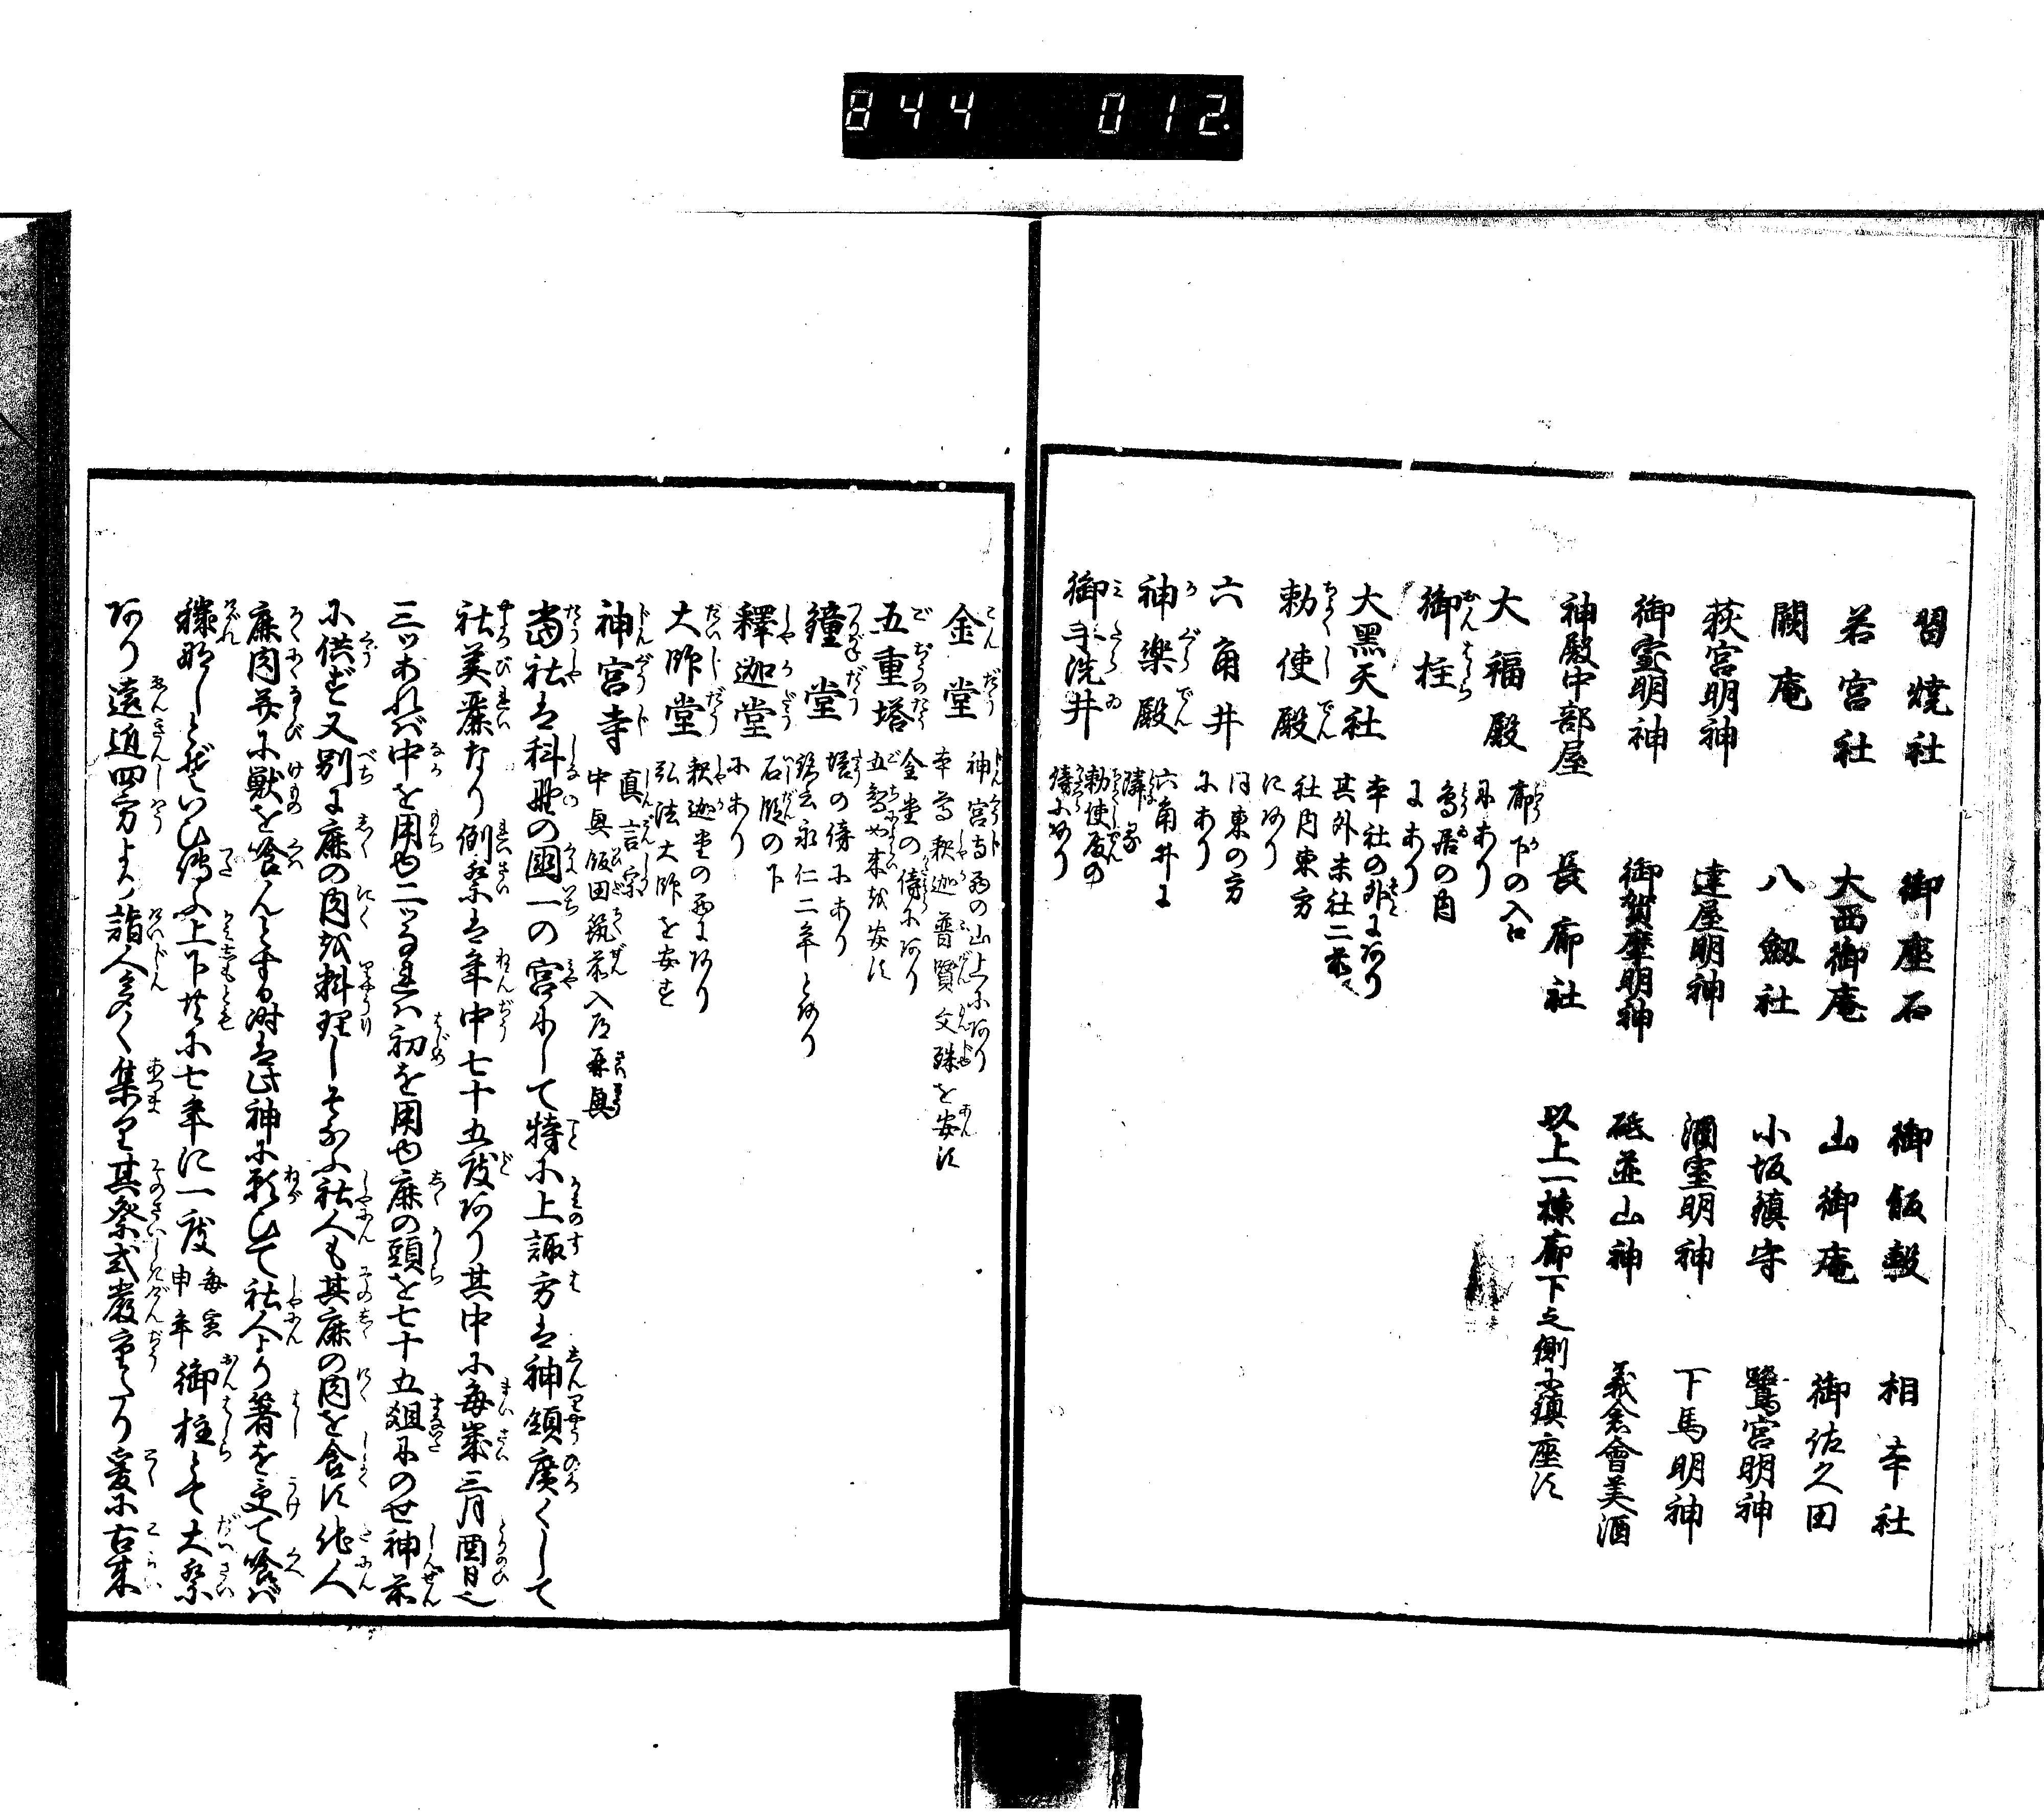 844 012.
習焼社 御座石 御飯殿 相本社
若宮社 大西御庵 山御庵 御佐久田
闕庵 八劔社 小坂鎮守 鷺宮明神
荻宮明神 達屋明神 酒室明神 下馬明神
御霊明神 御賀摩明神 砥並山神 義倉會美酒
神殿中部屋 長廊社 以上一棟廊下之側に鎮座す
大福殿 廊下の入口にあり
御柱 鳥居の内にあり
大黒天社 本社の外にあり其外末社二前ハ社内東方にあり
勅使殿 同東の方にあり
六角井
神楽殿 六角井に隣る
御手洗井 勅使殿の傍にあり
金堂 神宮寺前の山上にあり本尊釈迦普賢文殊を安す
五重塔 金堂の傍にあり五智如来を安す
鐘堂 塔の傍にあり鐘云永仁二年とあり
釋迦堂 石段の下にあり
大師堂 釈迦堂の前にあり弘法大師を安す
神宮寺 真言宗中興飯田筑前入道再興
當社は科野の國一の宮にして特に上諏方は神領廣くして
社美麗なり例祭は年中七十五度あり其中に毎歳三月酉日也
三ツあれバ中を用ゆ二ツの時ハ初を用ゆ鹿の頭を七十五俎にのせ神前
に供ず又別に鹿の肉を料理しそなふ社人も其鹿の肉を食す他人
鹿肉并に獣を喰んとする時は此神に願ひて社人より箸を受て喰バ
穢れなしとぞいひ傳ふ上下共に七年に一度毎寅申年御柱とて大祭
あり遠近四方より詣人多く集り其祭式厳重たり爰に古来